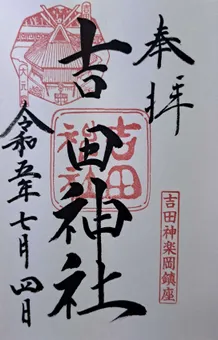 奉拝
吉田神社
令和五年七月四日
吉田神社
吉田神楽岡鎮座